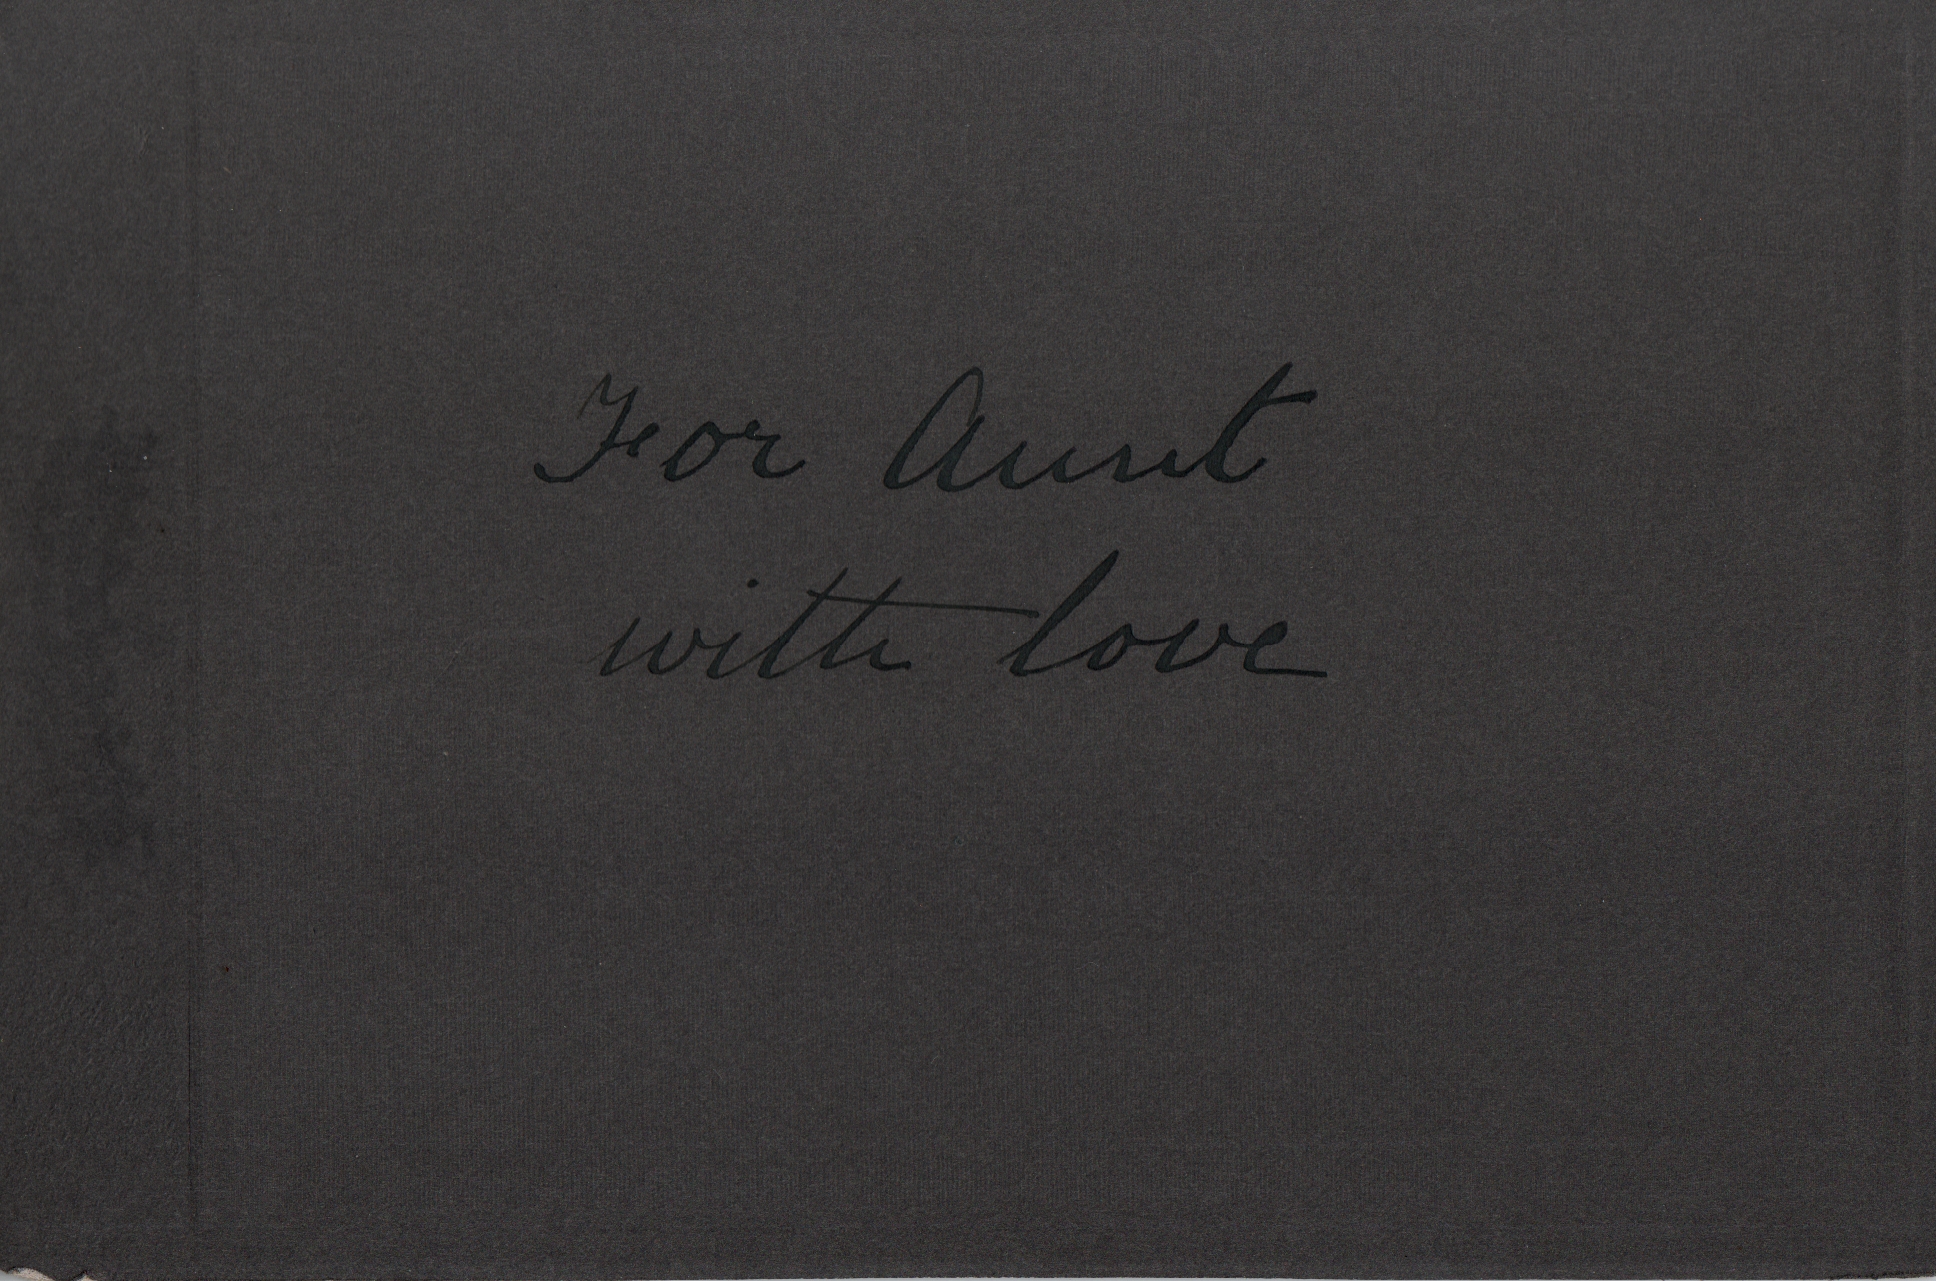 For Aunt
with love